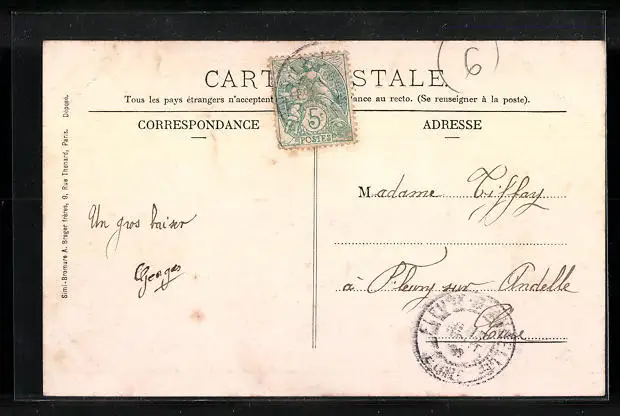 6
CARTE POSTALE
Tous les pays étrangers n'acceptent ance au recto. (Se renseigner à la poste).
5c
POSTES
CORRESPONDANCE
ADRESSE
Simi-Bromure A. Breger frères, 9, Rue Thenard, Paris. Déposé.
Un gros baiser
Georges
Madame Tiffay
à Fleury sur Andelle
Eure